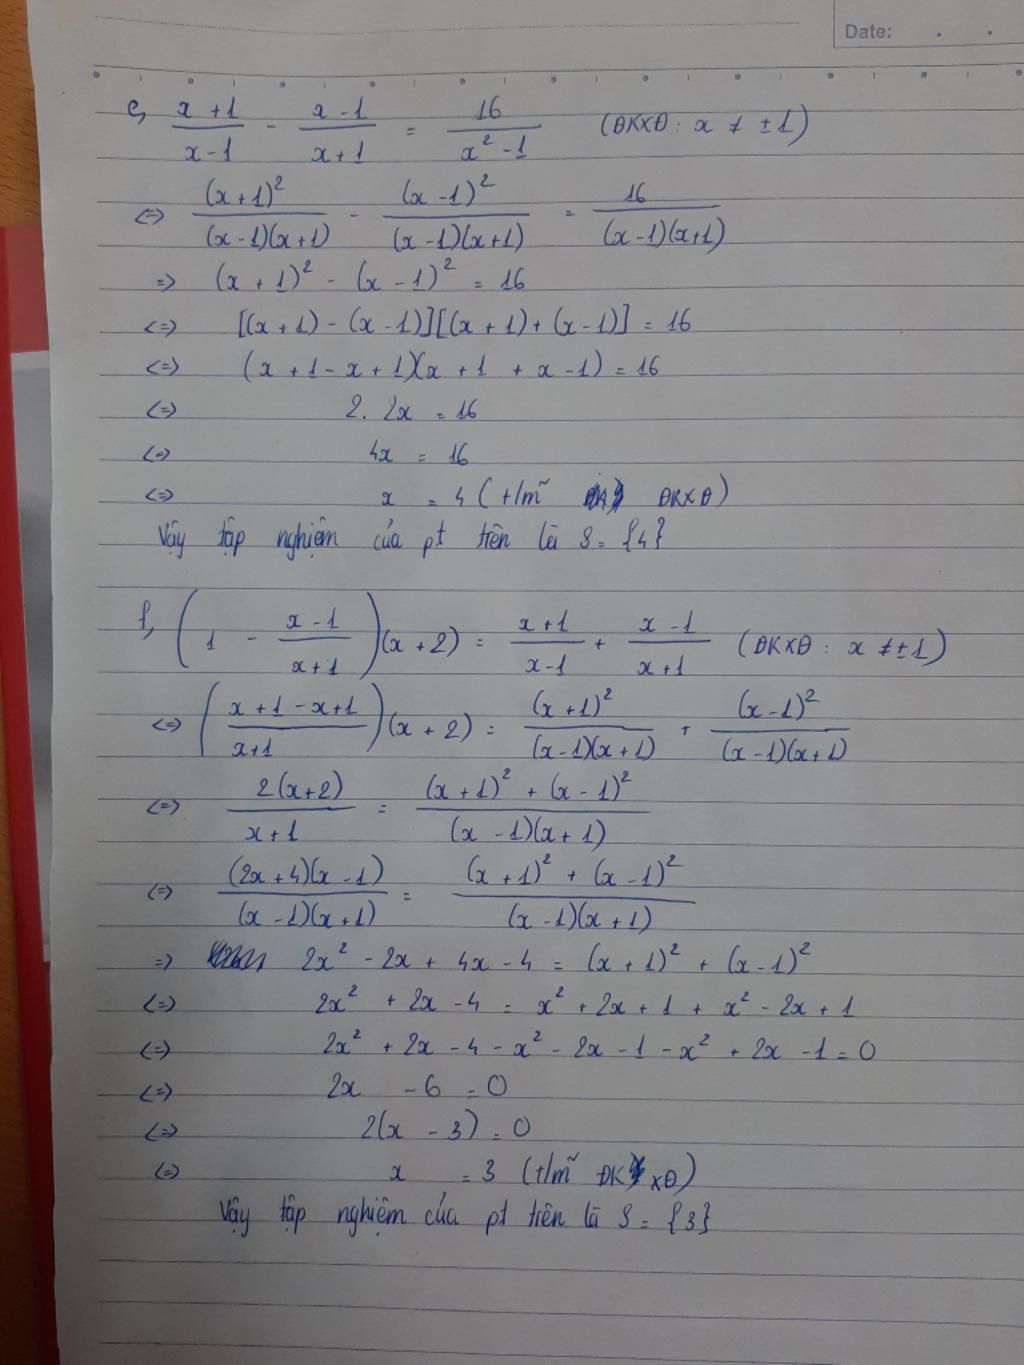 Date: . .
e, (x + 1)/(x - 1) - (x - 1)/(x + 1) = 16/(x² - 1) (ĐKXĐ : x ≠ ±1)
<=> (x + 1)²/((x - 1)(x + 1)) - (x - 1)²/((x - 1)(x + 1)) = 16/((x - 1)(x + 1))
=> (x + 1)² - (x - 1)² = 16
<=> [(x + 1) - (x - 1)][(x + 1) + (x - 1)] = 16
<=> (x + 1 - x + 1)(x + 1 + x - 1) = 16
<=> 2. 2x = 16
<=> 4x = 16
<=> x = 4 (t/m ĐKXĐ)
Vậy tập nghiệm của pt trên là S = {4}
f, (1 - (x - 1)/(x + 1))(x + 2) = (x + 1)/(x - 1) + (x - 1)/(x + 1) (ĐKXĐ : x ≠ ±1)
<=> ((x + 1 - x + 1)/(x + 1))(x + 2) = (x + 1)²/((x - 1)(x + 1)) + (x - 1)²/((x - 1)(x + 1))
<=> 2(x + 2)/(x + 1) = ((x + 1)² + (x - 1)²)/((x - 1)(x + 1))
<=> (2x + 4)(x - 1)/((x - 1)(x + 1)) = ((x + 1)² + (x - 1)²)/((x - 1)(x + 1))
=> 2x² - 2x + 4x - 4 = (x + 1)² + (x - 1)²
<=> 2x² + 2x - 4 = x² + 2x + 1 + x² - 2x + 1
<=> 2x² + 2x - 4 - x² - 2x - 1 - x² + 2x - 1 = 0
<=> 2x - 6 = 0
<=> 2(x - 3) = 0
<=> x = 3 (t/m ĐKXĐ)
Vậy tập nghiệm của pt trên là S = {3}